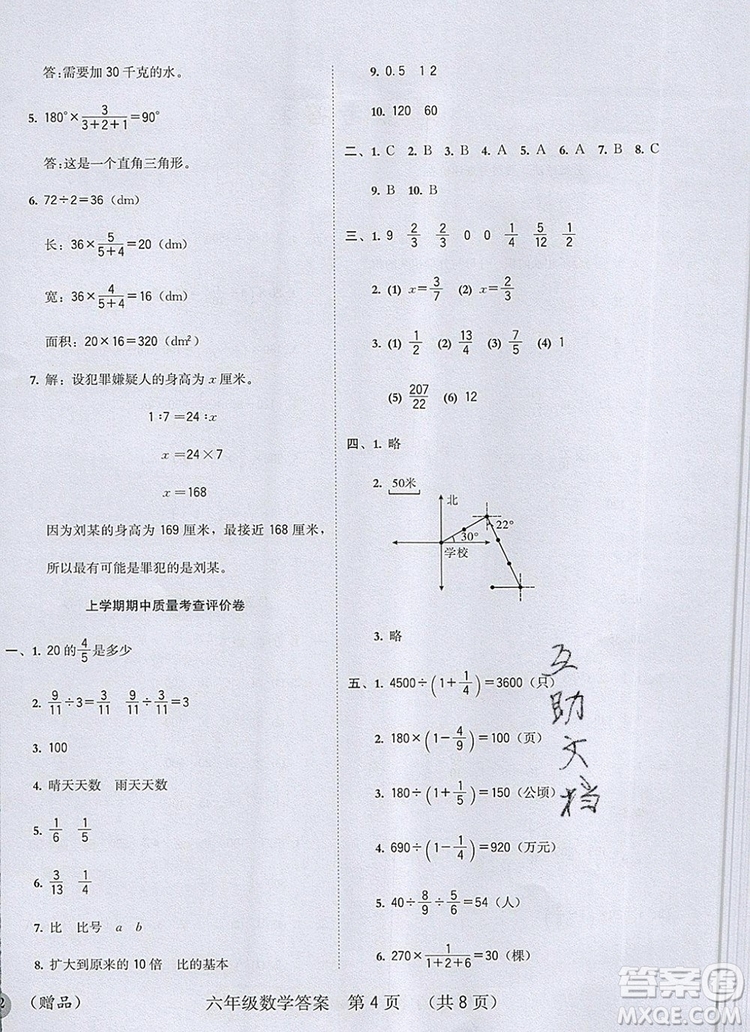 答:需要加 30 千克的水。
5. 180°×3/(3+2+1)=90°
答:这是一个直角三角形。
6. 72÷2=36(dm)
长:36×5/(5+4)=20(dm)
宽:36×4/(5+4)=16(dm)
面积:20×16=320(dm²)
7. 解:设犯罪嫌疑人的身高为 x 厘米。
1∶7=24∶x
x=24×7
x=168
因为刘某的身高为 169 厘米，最接近 168 厘米，
所以最有可能是罪犯的是刘某。
上学期期中质量考查评价卷
一、1. 20 的4/5是多少
2. 9/11÷3=3/11 9/11÷3/11=3
3. 100
4. 晴天天数 雨天天数
5. 1/6 1/5
6. 3/13 1/4
7. 比 比号 a b
8. 扩大到原来的 10 倍 比的基本
9. 0.5 1 2
10. 120 60
二、1. C 2. B 3. B 4. C 5. A 6. A 7. B 8. C
9. B 10. B
三、1. 9 2/3 2/3 0 0 1/4 5/12 1/2
2. (1) x=3/7 (2) x=2/3
3. (1) 1/2 (2) 13/4 (3) 7/5 (4) 1
(5) 207/22 (6) 12
四、1. 略
2. 50米
北
22°
30°
学校
3. 略
五、1. 4500÷(1+1/4)=3600(只)
2. 180×(1-4/9)=100(页)
3. 180÷(1+1/5)=150(公顷)
4. 690÷(1-1/4)=920(万元)
5. 40÷8/9÷5/6=54(人)
6. 270×1/(1+2+6)=30(棵)
互助文档
2
(赠品)
六年级数学答案 第 4 页 (共 8 页)
答案圈
MXQE.COM